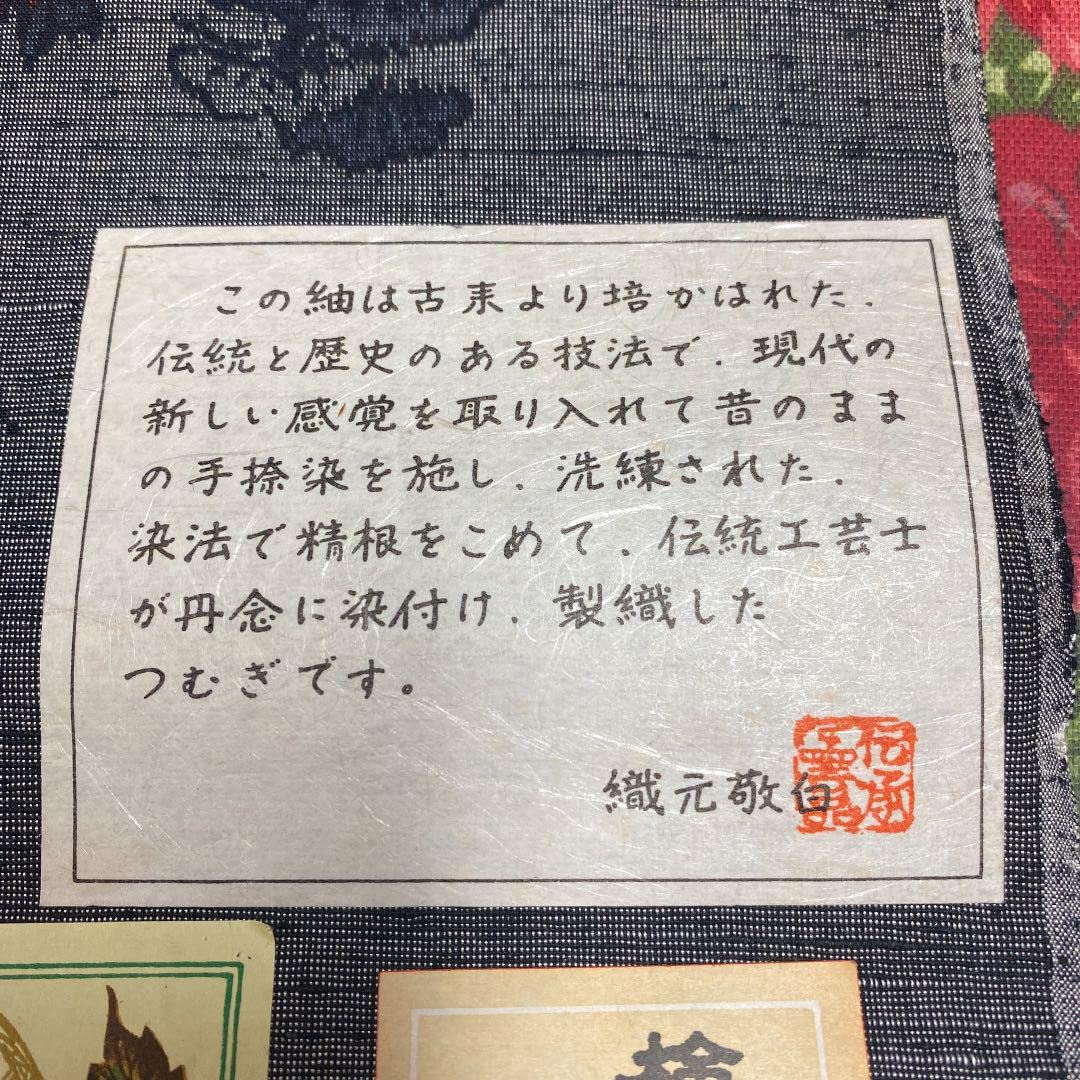 この紬は古来より培かはれた、
伝統と歴史のある技法で、現代の
新しい感覚を取り入れて昔のまま
の手捺染を施し、洗練された、
染法で精根をこめて、伝統工芸士
が丹念に染付け、製織した
つむぎです。
織元敬白
伝承
工芸品
検